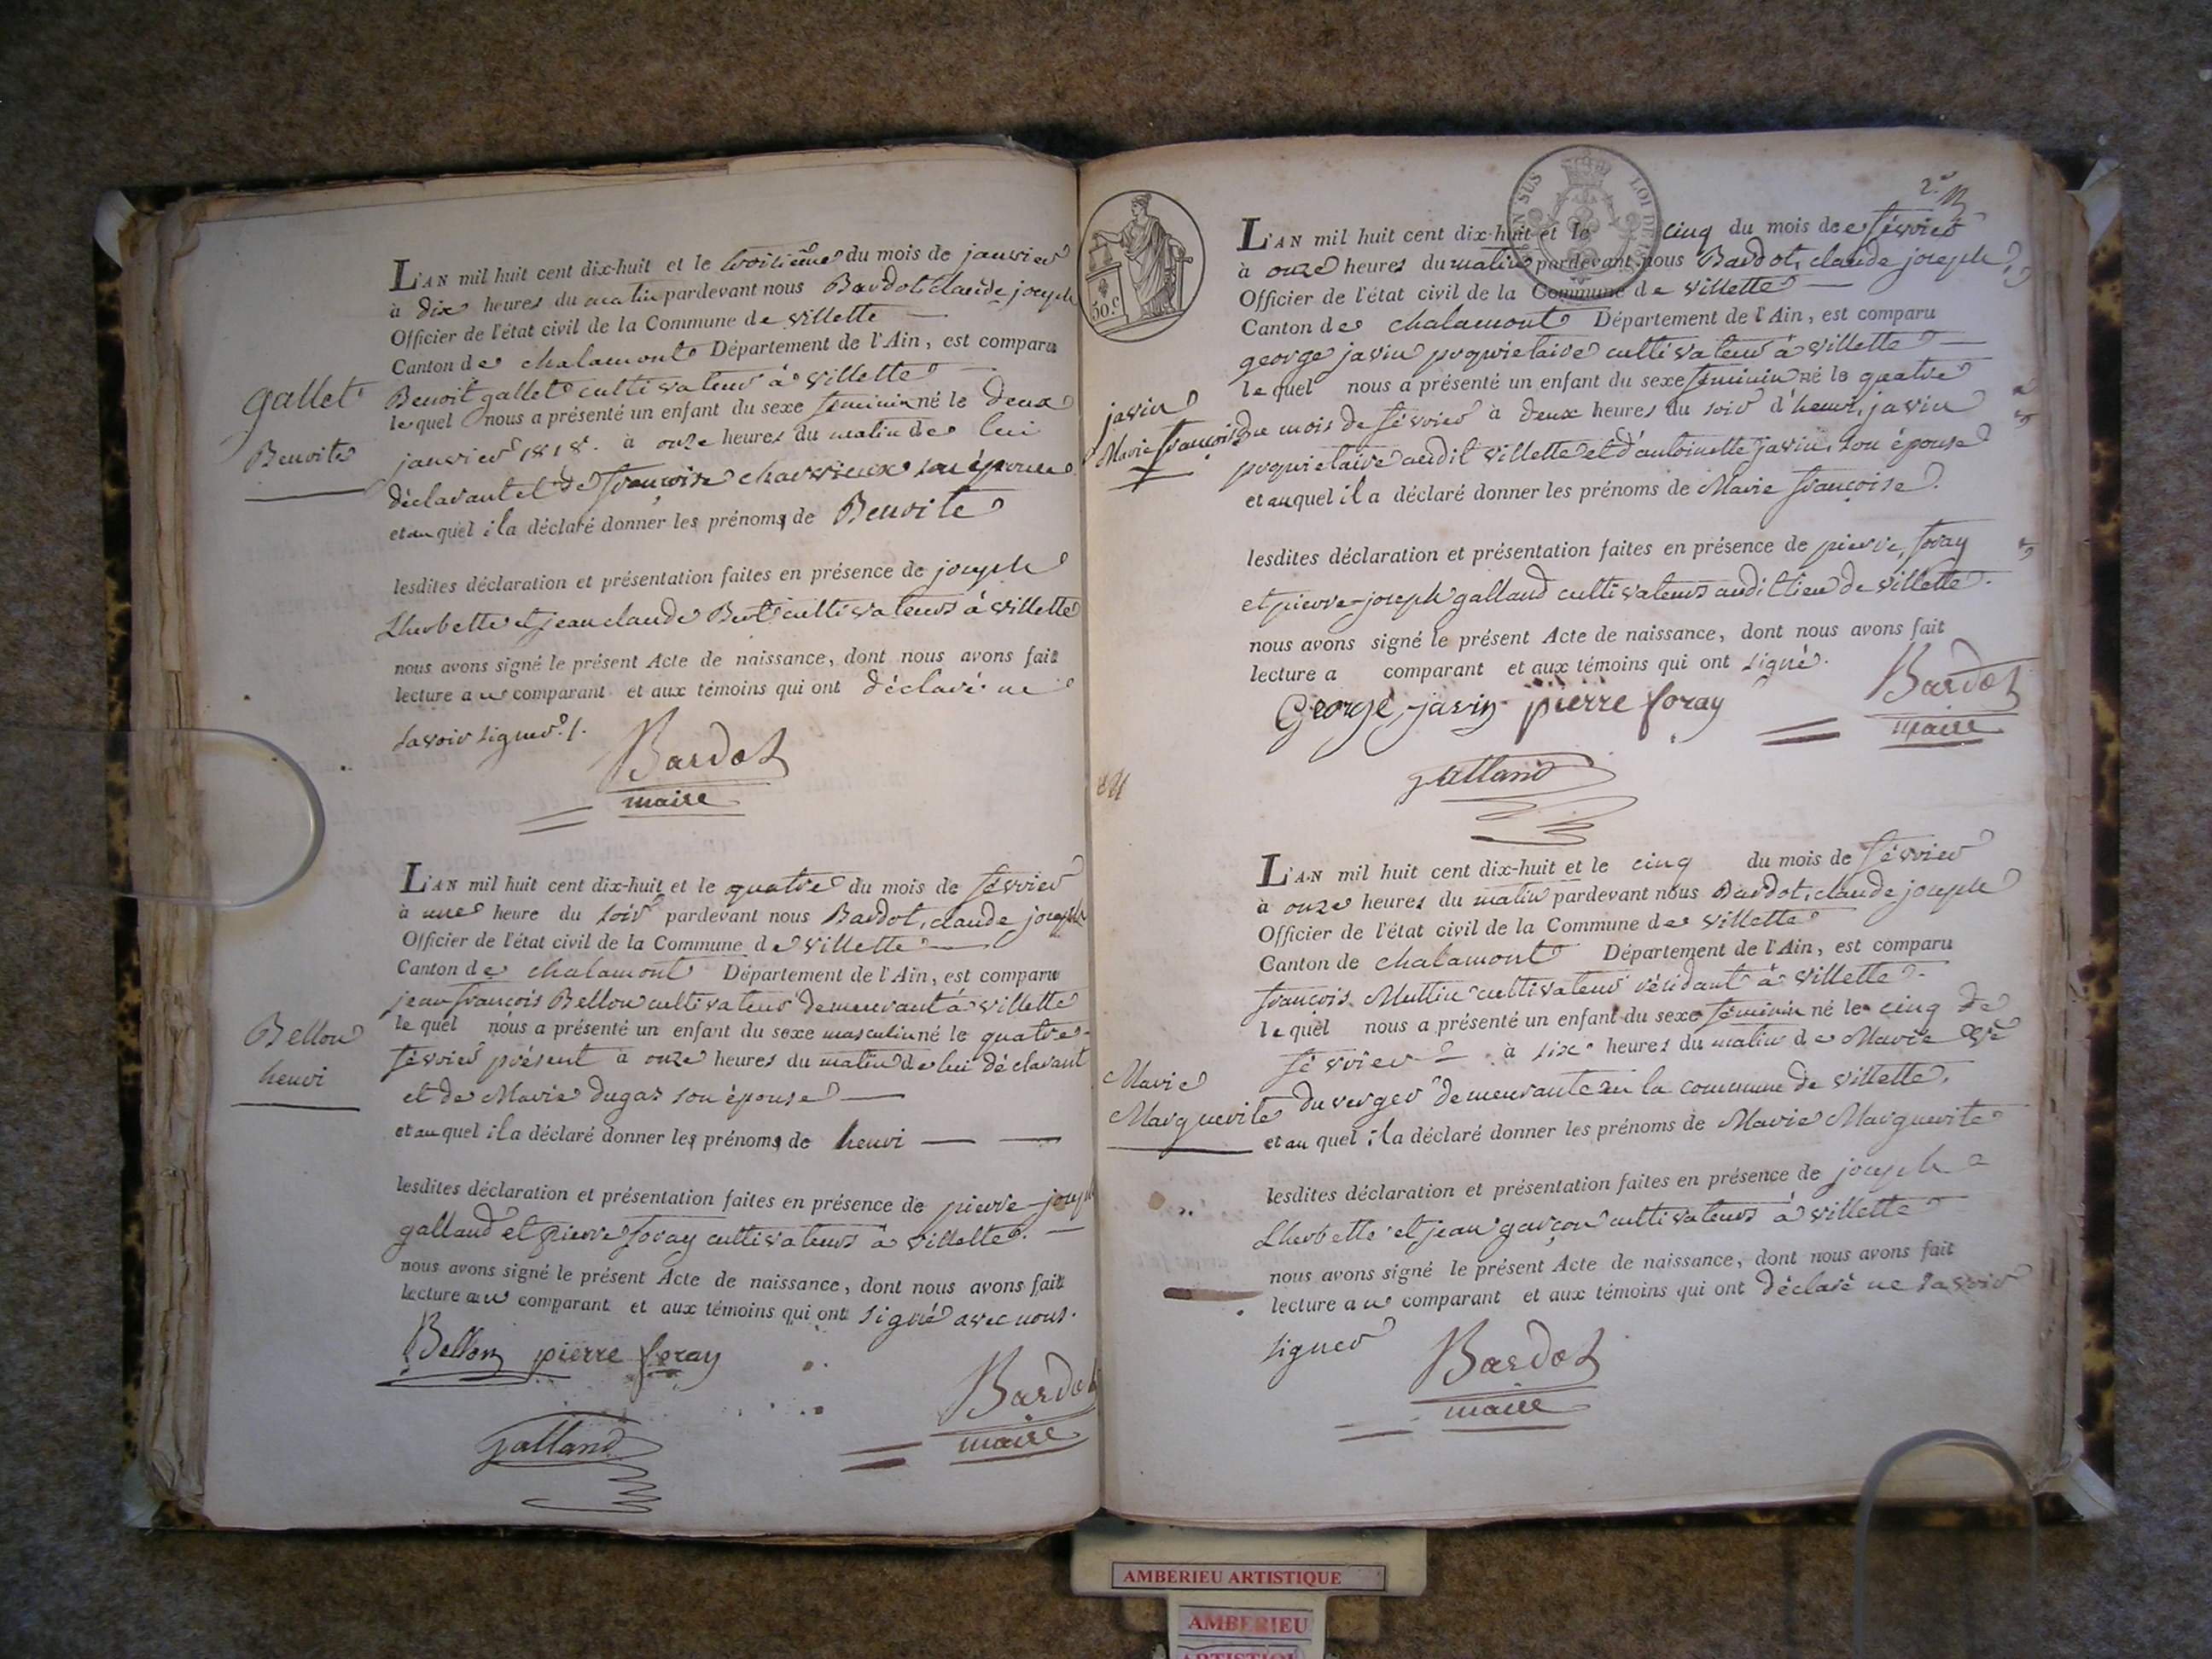 L'AN mil huit cent dix-huit et le troisième du mois de janvier
à dix heures du matin pardevant nous Bardot claude joseph
Officier de l'état civil de la Commune de villette
Canton de chalamont Département de l'Ain, est comparu
Benoit gallet cultivateur à villette
le quel nous a présenté un enfant du sexe feminin né le deux
janvier 1818. à onze heures du matin de lui
déclarant et de françoise charvieux son épouse
et au quel il a déclaré donner les prénoms de Benoite
lesdites déclaration et présentation faites en présence de joseph
Lherbette et jean claude Bert cultivateurs à villette
nous avons signé le présent Acte de naissance, dont nous avons fait
lecture au comparant et aux témoins qui ont déclaré ne
savoir signer ./.
Bardot
maire
gallet
Benoite
L'AN mil huit cent dix-huit et le quatre du mois de février
à une heure du soir pardevant nous Bardot, claude joseph
Officier de l'état civil de la Commune de villette
Canton de chalamont Département de l'Ain, est comparu
jean françois Bellon cultivateur demeurant à villette
le quel nous a présenté un enfant du sexe masculin né le quatre
février présent à onze heures du matin de lui déclarant
et de Marie dugas son épouse
et au quel il a déclaré donner les prénoms de henri
lesdites déclaration et présentation faites en présence de pierre-joseph
galland et pierre foray cultivateurs à villette.
nous avons signé le présent Acte de naissance, dont nous avons fait
lecture au comparant et aux témoins qui ont signé avec nous.
Bellon pierre foray
Bardot
maire
galland
Bellon
henri
2e
50.c
L'AN mil huit cent dix-huit et le cinq du mois de février
à onze heures du matin pardevant nous Bardot, claude joseph
Officier de l'état civil de la Commune de villette
Canton de chalamont Département de l'Ain, est comparu
george javin proprietaire cultivateur à villette
le quel nous a présenté un enfant du sexe feminin né le quatre
du mois de février à deux heures du soir d'henri, javin
proprietaire audit villette et d'antoinette javin, son épouse
et auquel il a déclaré donner les prénoms de Marie françoise.
lesdites déclaration et présentation faites en présence de pierre, foray
et pierre-joseph galland cultivateurs audit lieu de villette.
nous avons signé le présent Acte de naissance, dont nous avons fait
lecture a comparant et aux témoins qui ont signé.
George javin pierre foray
Bardot
maire
galland
javin
Marie françoise
L'AN mil huit cent dix-huit et le cinq du mois de février
à onze heures du matin pardevant nous Bardot, claude joseph
Officier de l'état civil de la Commune de villette
Canton de chalamont Département de l'Ain, est comparu
françois Muttin cultivateur résidant à villette
le quel nous a présenté un enfant du sexe féminin né le cinq de
février à six heures du matin de Marie
du verger demeurante en la commune de villette.
et au quel il a déclaré donner les prénoms de Marie Marguerite
lesdites déclaration et présentation faites en présence de joseph
Lherbette et jean garçon cultivateurs à villette
nous avons signé le présent Acte de naissance, dont nous avons fait
lecture au comparant et aux témoins qui ont déclaré ne savoir
signer
Bardot
maire
Marie
Marguerite
AMBERIEU ARTISTIQUE
AMBERIEU
ARTISTIQU